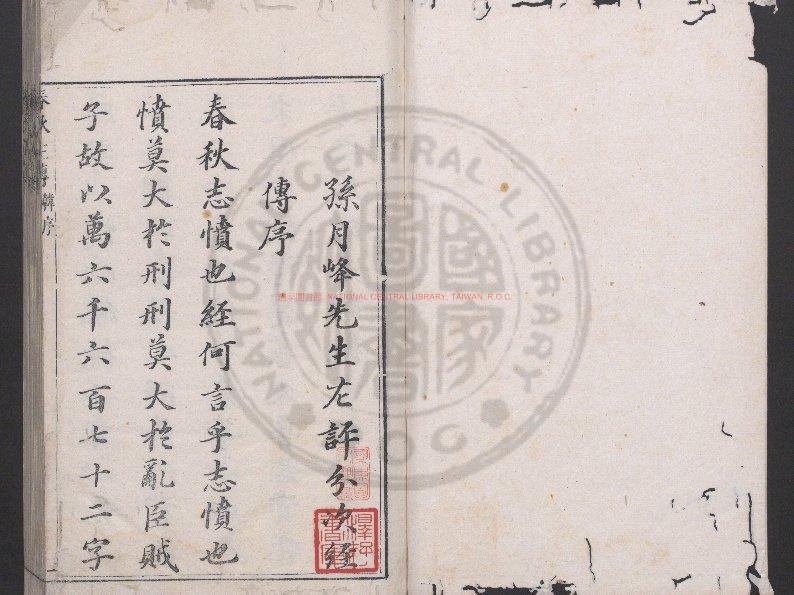 孫月峰先生左評分次經
傳序
春秋志憤也經何言乎志憤也
憤莫大於刑刑莫大於亂臣賊
子故以萬六千六百七十二字
韓序
NATIONAL CENTRAL LIBRARY, TAIWAN, R.O.C.
NATIONAL CENTRAL LIBRARY
ROC